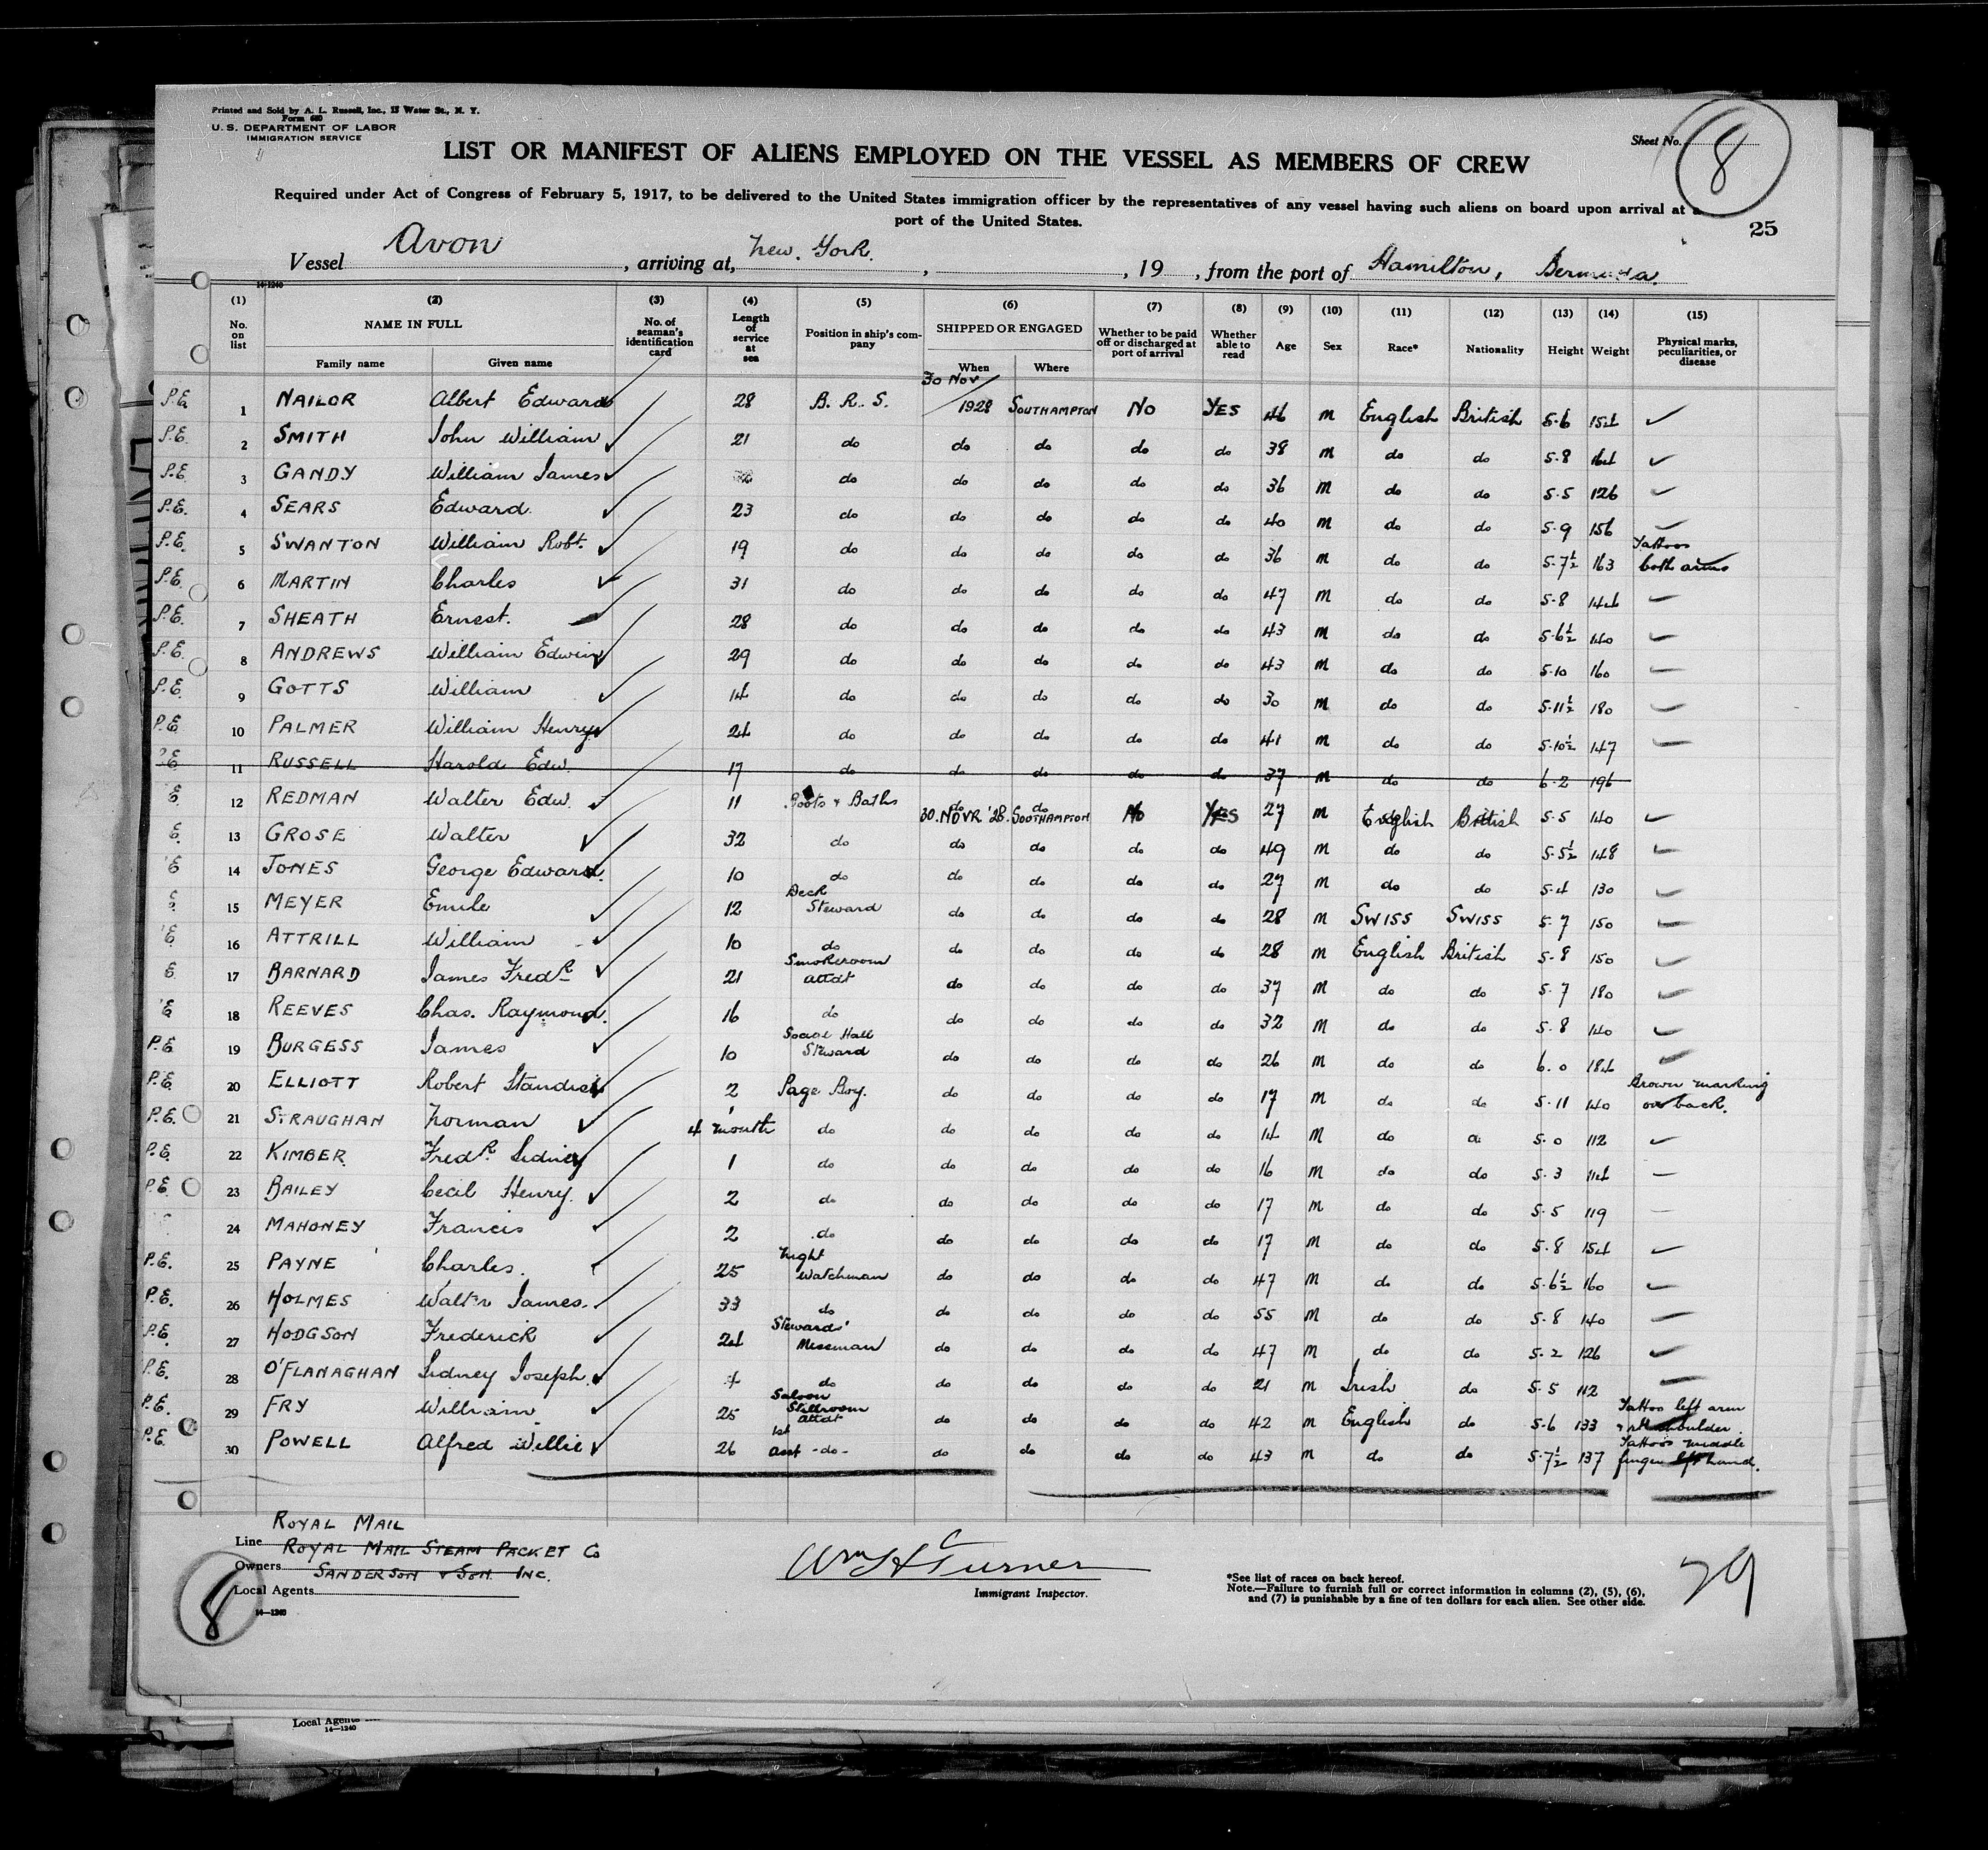 Printed and Sold by A. L. Russell, Inc., 15 Water St., N. Y.
Form 680
U. S. DEPARTMENT OF LABOR
IMMIGRATION SERVICE
Sheet No. 8
LIST OR MANIFEST OF ALIENS EMPLOYED ON THE VESSEL AS MEMBERS OF CREW
Required under Act of Congress of February 5, 1917, to be delivered to the United States immigration officer by the representatives of any vessel having such aliens on board upon arrival at a
port of the United States.
25
Vessel Avon, arriving at, New York., , 19 , from the port of Hamilton, Bermuda.
14-1240
(1) (2) (3) (4) (5) (6) (7) (8) (9) (10) (11) (12) (13) (14) (15)
No. on list NAME IN FULL Family name Given name No. of seaman's identification card Length of service at sea Position in ship's company SHIPPED OR ENGAGED When Where Whether to be paid off or discharged at port of arrival Whether able to read Age Sex Race* Nationality Height Weight Physical marks, peculiarities, or disease
P.E. 1 NAILOR Albert Edward 28 B. R. S. 30 Nov 1928 SOUTHAMPTON No YES 46 M English British 5-6 154
P.E. 2 SMITH John William 21 do do do do do 38 M do do 5-8 164
P.E. 3 GANDY William James do do do do do 36 M do do 5-5 126
P.E. 4 SEARS Edward 23 do do do do do 40 M do do 5-9 156
P.E. 5 SWANTON William Robt. 19 do do do do do 36 M do do 5-7½ 163 Tattoos both arms
P.E. 6 MARTIN Charles 31 do do do do do 47 M do do 5-8 144
P.E. 7 SHEATH Ernest. 28 do do do do do 43 M do do 5-6½ 140
P.E. 8 ANDREWS William Edwin 29 do do do do do 43 M do do 5-10 160
P.E. 9 GOTTS William 14 do do do do do 30 M do do 5-11½ 180
P.E. 10 PALMER William Henry 24 do do do do do 41 M do do 5-10½ 147
P.E. 11 RUSSELL Harold Edw. 17 do do do do do 37 M do do 6-2 196
E. 12 REDMAN Walter Edw. 11 Boots & Baths do 30. NOVR '28. do SOUTHAMPTON No YES 27 M English British 5-5 140
E. 13 GROSE Walter 32 do do do do do 49 M do do 5-5½ 148
E 14 JONES George Edward. 10 do do do do do 27 M do do 5-4 130
E. 15 MEYER Emile 12 Deck Steward do do do do 28 M SWISS SWISS 5-7 150
E. 16 ATTRILL William 10 do do do do do 28 M English British 5-8 150
E. 17 BARNARD James Fredr 21 Smokeroom attdt do do do do 37 M do do 5-7 180
E 18 REEVES Chas. Raymond. 16 do do do do do 32 M do do 5-8 140
P.E. 19 BURGESS James 10 Social Hall Steward do do do do 26 M do do 6.0 184
P.E. 20 ELLIOTT Robert Standish 2 Page Boy. do do do do 17 M do do 5-11 140 Brown marking on back.
P.E. 21 STRAUGHAN Norman 4 month do do do do do 14 M do do 5-0 112
P.E. 22 KIMBER Fredr. Sidney 1 do do do do do 16 M do do 5-3 114
P.E. 23 BAILEY Cecil Henry. 2 do do do do do 17 M do do 5-5 119
24 MAHONEY Francis 2 do do do do do 17 M do do 5-8 154
P.E. 25 PAYNE Charles. 25 Night Watchman do do do do 47 M do do 5-6½ 160
P.E. 26 HOLMES Walter James. 33 do do do do do 55 M do do 5-8 140
P.E. 27 HODGSON Frederick 24 Stewards' Messman do do do do 47 M do do 5-2 126
P.E. 28 O'FLANAGHAN Sidney Joseph. do do do do do 21 M Irish do 5-5 112
P.E. 29 FRY William 25 Saloon Stillroom attdt do do do do 42 M English do 5-6 133 Tattoo left arm & rt shoulder.
P.E. 30 POWELL Alfred Willie 26 1st asst -do- do do do do 43 M do do 5-7½ 137 Tattoos middle finger left hand.
ROYAL MAIL
Line ROYAL MAIL STEAM PACKET Co
Owners SANDERSON & SON. INC.
Local Agents
8
14-1240
Wm H C Turner
Immigrant Inspector.
*See list of races on back hereof.
Note.—Failure to furnish full or correct information in columns (2), (5), (6),
and (7) is punishable by a fine of ten dollars for each alien. See other side.
29
Local Agents
14-1240